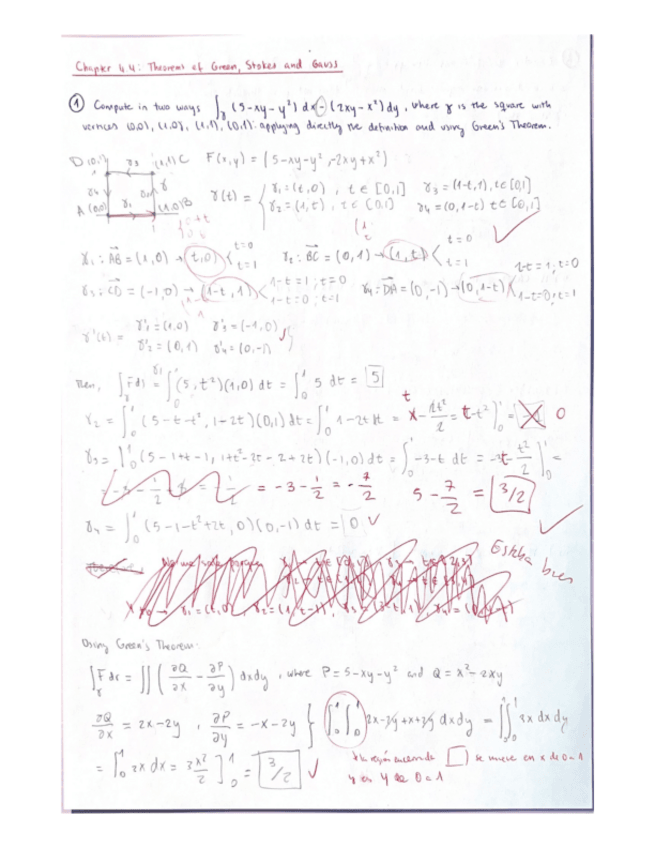 Chapter 4.4: Theorems of Green, Stokes and Gauss
① Compute in two ways ∫γ (5-xy-y²) dx - (2xy-x²) dy, where γ is the square with
vertices (0,0), (1,0), (1,1), (0,1): applying directly the definition and using Green's Theorem.
F(x,y) = (5-xy-y², -2xy+x²)
D (0,1) γ3 (1,1) C
γ4
A (0,0) γ1 (1,0) B
γ(t) = { γ1 = (t,0), t ∈ [0,1] γ3 = (1-t,1), t ∈ [0,1]
γ2 = (1,t), t ∈ [0,1] γ4 = (0,1-t) t ∈ [0,1]
γ1: AB = (1,0) → (t,0) < t=0 t=1 γ2: BC = (0,1) → (1,t) < t=0 t=1
γ3: CD = (-1,0) → (1-t,1) < 1-t=1; t=0 1-t=0; t=1 γ4: DA = (0,-1) → (0,1-t) < 1-t=1; t=0 1-t=0; t=1
γ'(t) = γ'1 = (1,0) γ'3 = (-1,0)
γ'2 = (0,1) γ'4 = (0,-1)
Then, ∫γ F ds = ∫₀¹ (5,t²)(1,0) dt = ∫₀¹ 5 dt = 5
γ2 = ∫₀¹ (5-t-t², 1-2t)(0,1) dt = ∫₀¹ 1-2t dt = t - 2t²/2 = t-t²]₀¹ = 0
γ3 = ∫₀¹ (5-1+t-1, 1+t²-2t-2+2t)(-1,0) dt = ∫₀¹ -3-t dt = -3t - t²/2]₀¹ =
= -3 - 1/2 = -7/2 5 - 7/2 = 3/2
γ4 = ∫₀¹ (5-1-t²+2t, 0)(0,-1) dt = 0 ✓
Estaba bien
Using Green's Theorem:
∫γ F dr = ∬ (∂Q/∂x - ∂P/∂y) dxdy, where P = 5-xy-y² and Q = x²-2xy
∂Q/∂x = 2x-2y, ∂P/∂y = -x-2y } ∫₀¹∫₀¹ 2x-2y+x+2y dxdy = ∫₀¹∫₀¹ 3x dx dy
= ∫₀¹ 3x dx = 3x²/2]₀¹ = 3/2 ✓
la región encerrada □ se mueve en x de 0 a 1
y en y de 0 a 1